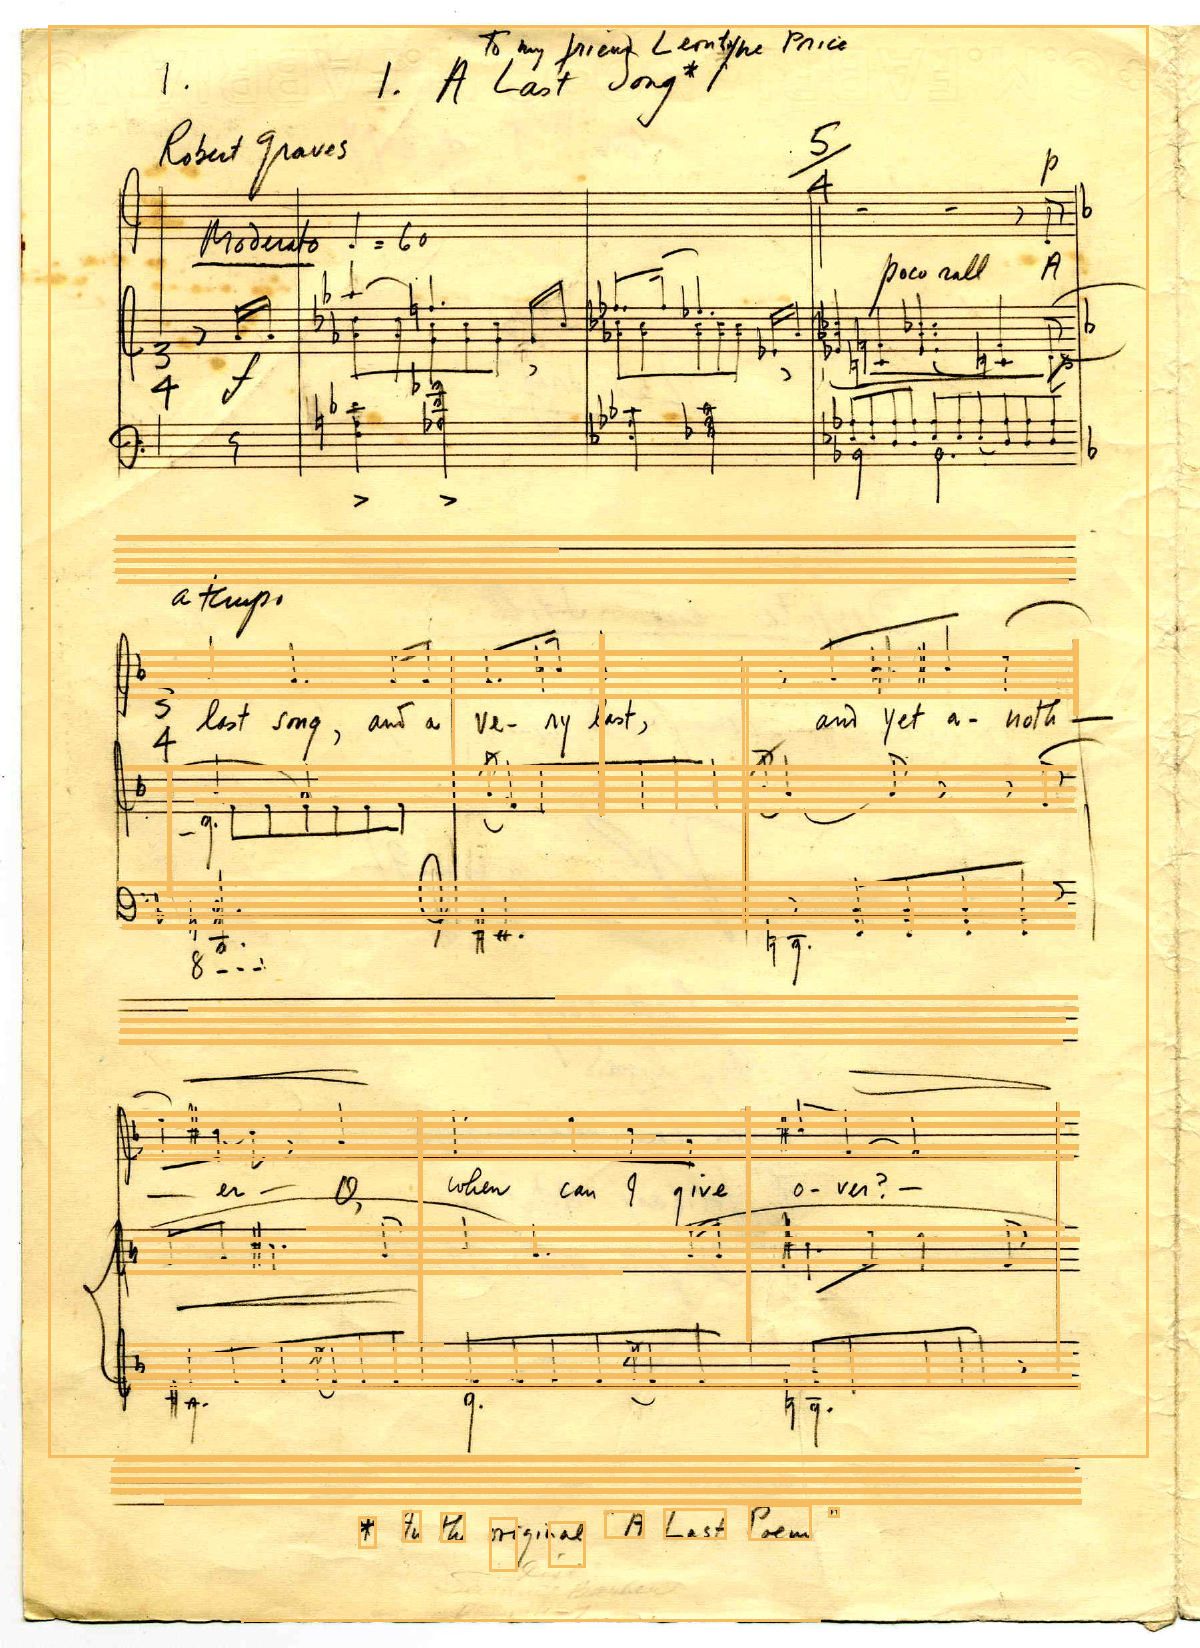 To my friend Leontyne Price
1. 1. A Last Song*
Robert Graves
5/4
p
Moderato ♩ = 60
poco rall A
3
4 f
a tempo
5
4 last song, and a ve- ry last, and yet a- noth —
8 - - -
— er — O, when can I give o- ver? —
* In the original "A Last Poem"